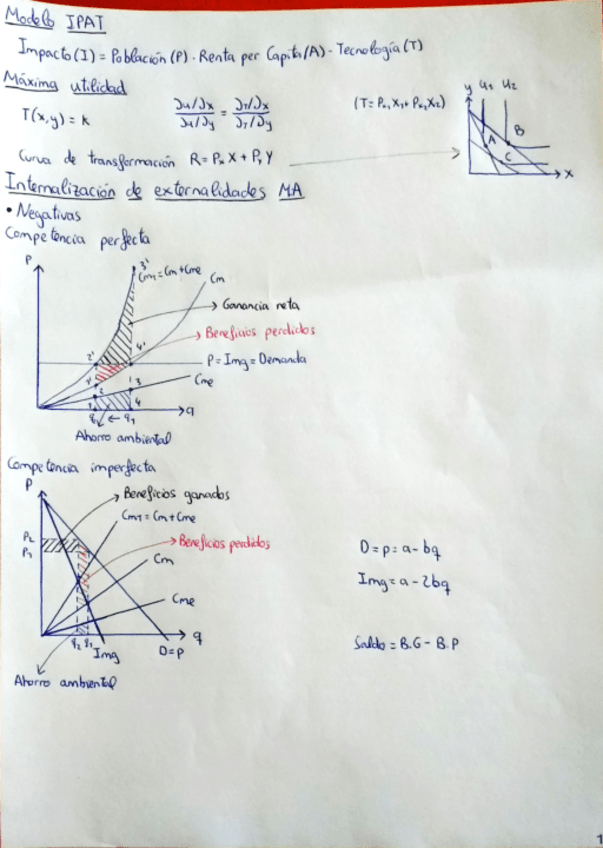 Modelo IPAT
Impacto (I) = Población (P) · Renta per Capita (A) · Tecnología (T)
Máxima utilidad
T(x,y) = k
∂u/∂x / ∂u/∂y = ∂T/∂x / ∂T/∂y
(T = Px1 X1 + Px2 X2)
y u1 u2
A B C
x
Curva de transformación R = Px X + Py Y
Internalización de externalidades MA
• Negativas
Competencia perfecta
P
3'
CmT = Cm + Cme
Cm
Ganancia neta
Beneficios perdidos
2' 4'
P = Img = Demanda
1' 2 3
Cme
1 4
q2 ← q1
q
Ahorro ambiental
Competencia imperfecta
P
Beneficios ganados
CmT = Cm + Cme
P2
P1
Beneficios perdidos
Cm
Cme
q2 q1
Img
D = P
q
Ahorro ambiental
D = p = a - bq
Img = a - 2bq
Saldo = B.G - B.P
1